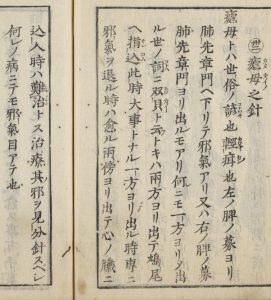 瘧母之針
瘧母トハ世俗ノ諺也 癖也左ノ脾ノ募ヨリ
肺先章門ヘ下リテ邪氣アリ又ハ右ノ脾ノ募
肺先章門ヨリ出ルモアリ何ニモ一方ヨリ出
ル世ノ諷ニ双貝ト云トキハ両方ヨリ出テ鳩尾
ヘ指込此時大事トナル一方ヨリ出ル時專ニ
邪氣ヲ退ル時ハ愈ル兩傍ヨリ出テ心ノ臓ニ
込入時ハ難治トス治療其邪ヲ見分針スベシ
何レノ病ニテモ邪氣目アテ也